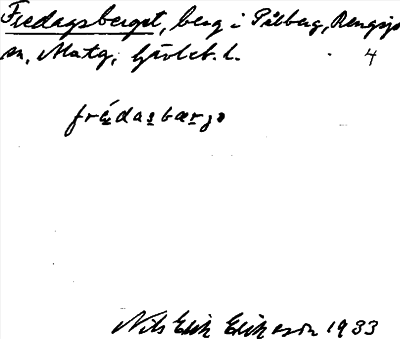 Fredagsberget, berg i Pålberg, Rengsjö
sn, 4
frédasbærjə
Nils Erik Eriksson 1933